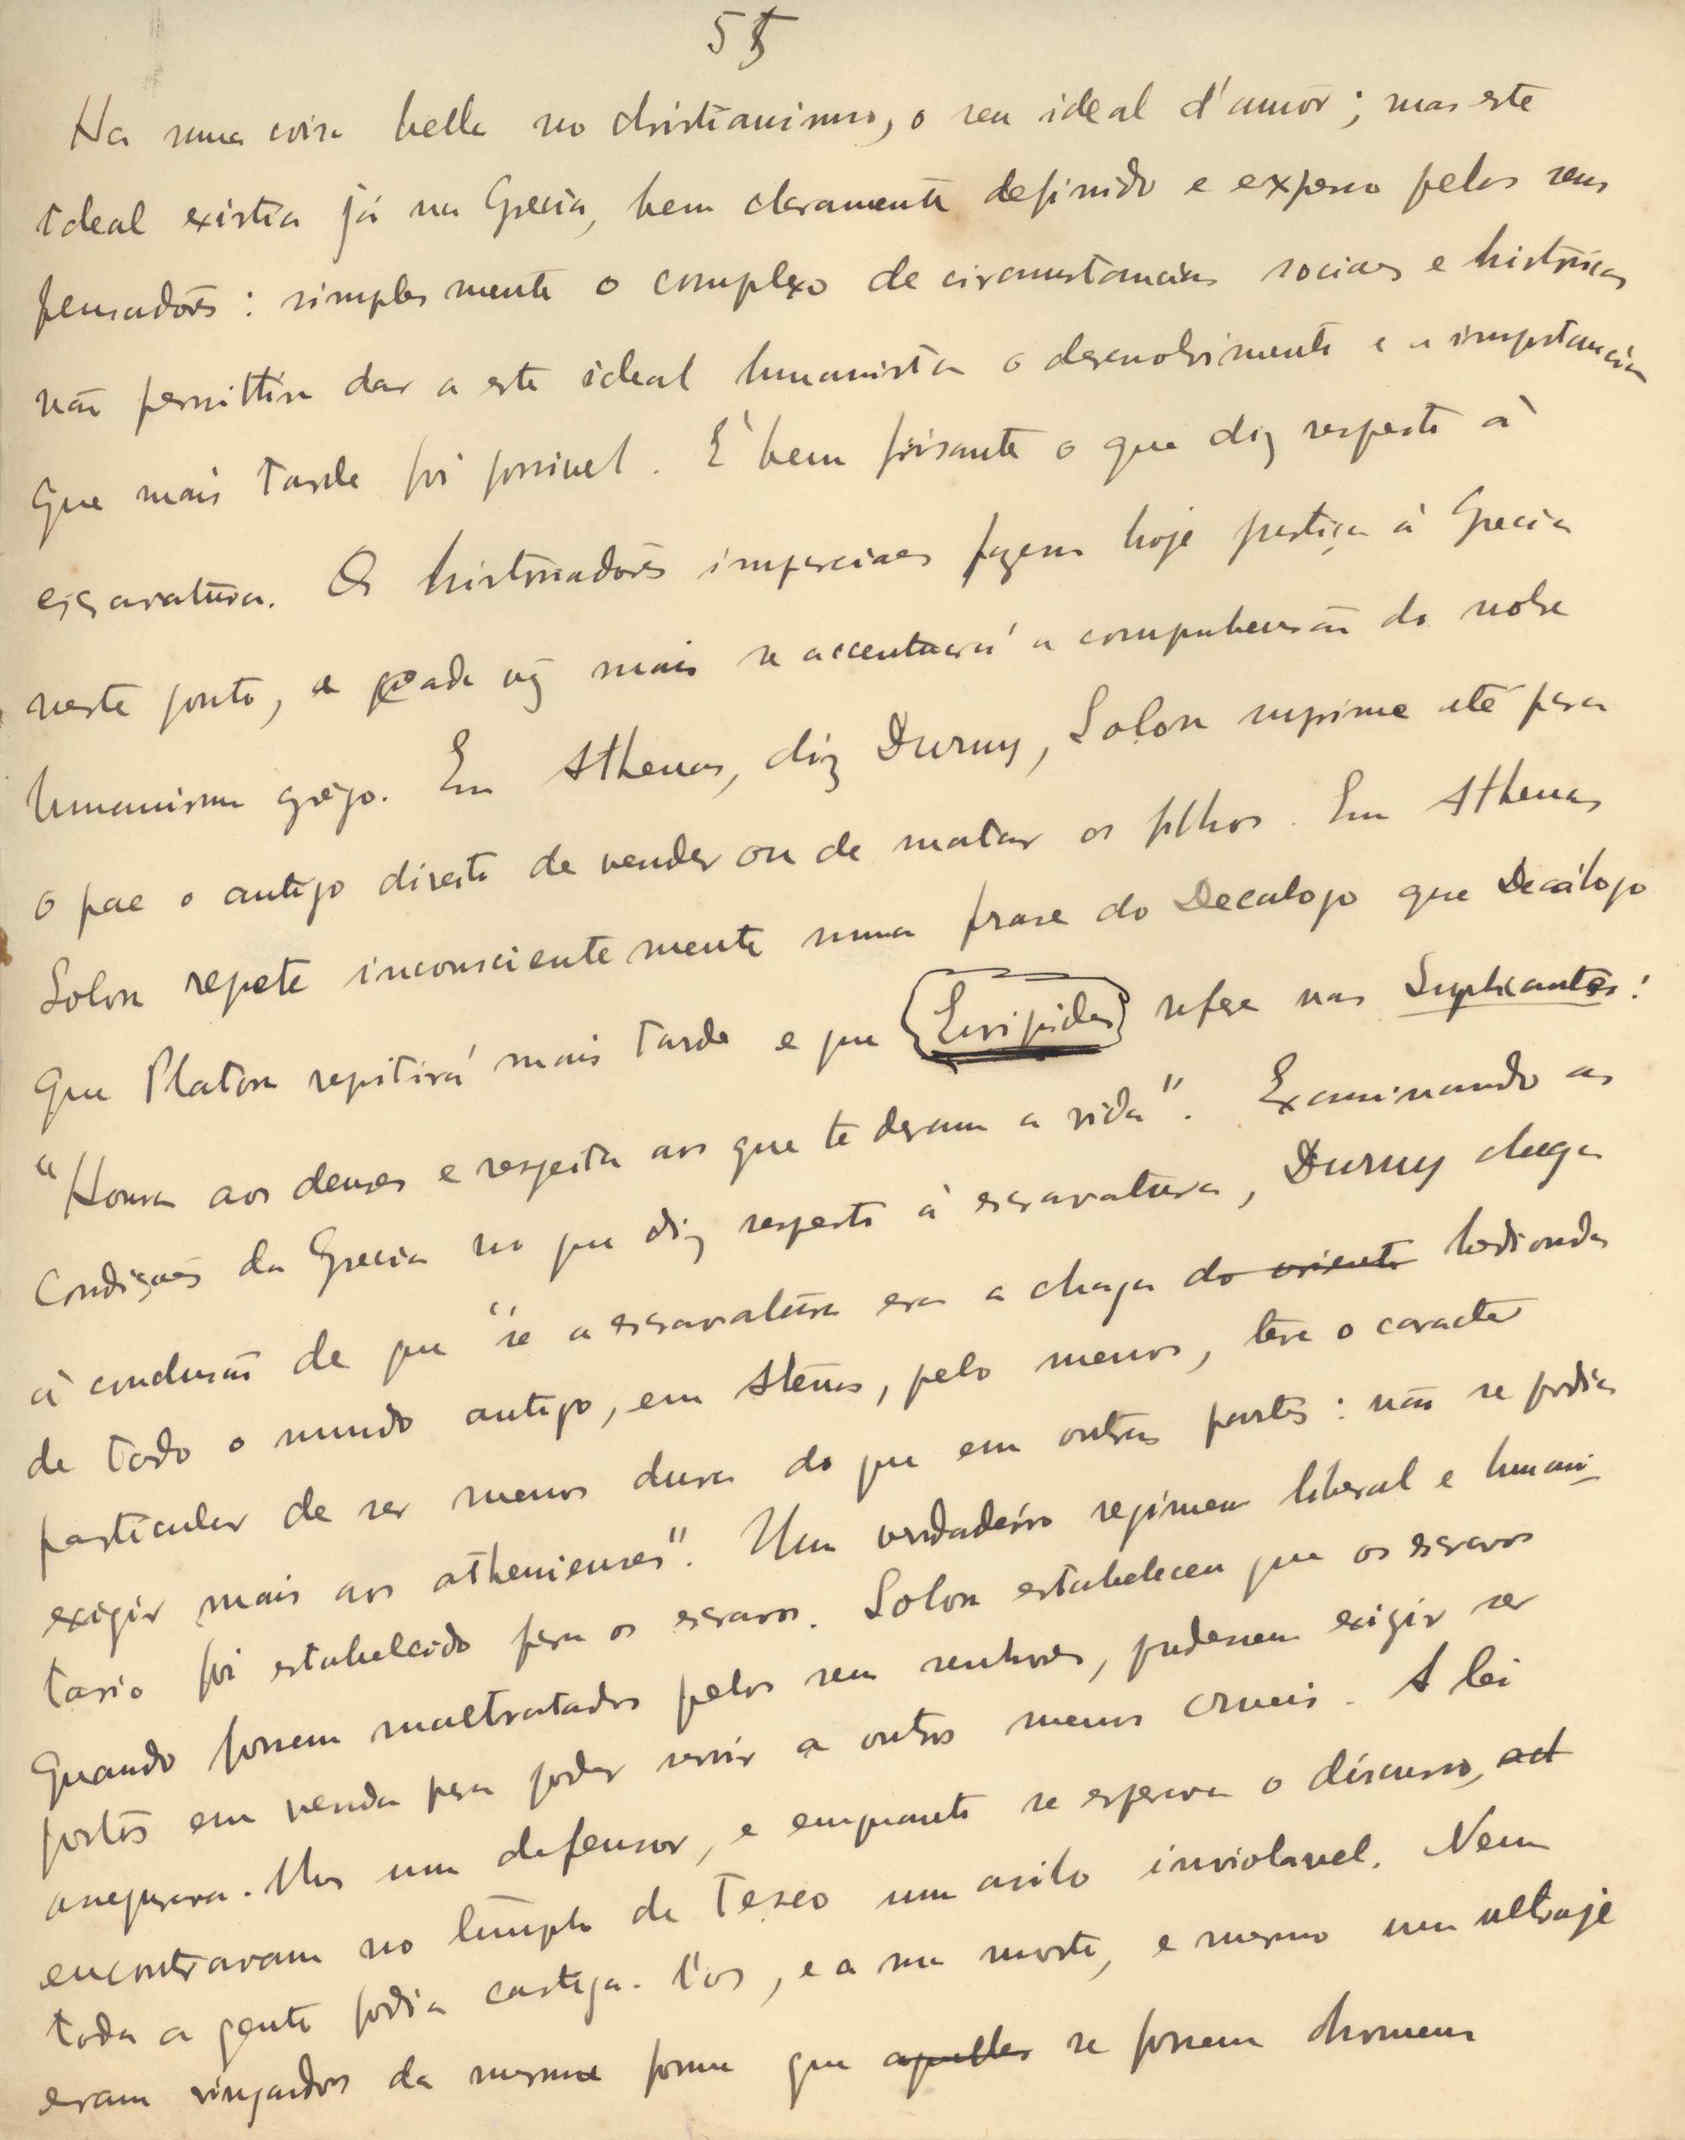 55
Ha uma coisa bella no christianismo, o seu ideal d'amôr; mas este
ideal existia já na Grecia, bem claramente definido e exposto pelos seus
pensadôres: simplesmente o complexo de circumstancias sociaes e históricas
não permittia dar a este ideal humanista o desenvolvimento e a importancia
que mais tarde foi possivel. E' bem frisante o que diz respeito à
escravatura. Os historiadôres imparciaes fazem hoje justiça à Grecia
neste ponto, e cada vez mais se accentuará a comprehensão do nobre
humanismo grêgo. Em Athenas, diz Duruy, Solon suprime até para
o pae o antigo direito de vender ou de matar os filhos. Em Athenas
Solon repete inconscientemente uma frase do Decalogo que Decálogo
que Platon repitirá mais tarde e que Euripides refere nas Suplicantes:
"Honra aos deuses e respeita aos que te deram a vida". Examinando as
condições da Grecia no que diz respeito à escravatura, Duruy chega
à conclusão de que "se a escravatura era a chaga do oriente hedionda
de todo o mundo antigo, em Atenas, pelo menos, teve o caracter
particular de ser menos dura do que em outras partes: não se podia
exigir mais aos athenienses". Um verdadeiro regimen liberal e humani-
tario foi estabelecido para os escravos. Solon estabeleceu que os escravos
quando fossem maltratados pelos seus senhores, pudessem exigir ser
postos em venda para poder servir a outros menos crueis. A lei
assegurava-lhes um defensor, e emquanto se esperava o discurso, act
encontravam no templo de Teseo um asilo inviolavel. Nem
toda a gente podia castiga-l'os, e a sua morte, e mesmo um ultraje
eram vingados da mesma forma que aquelles se fossem d'homens